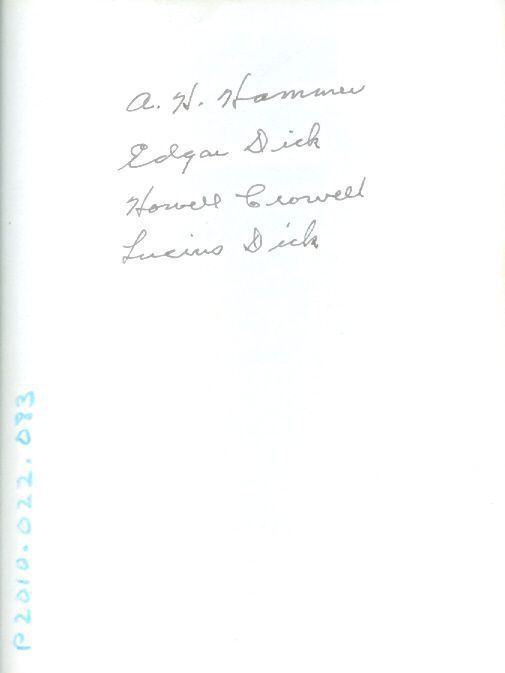 A. H. Hammer
Edgar Dick
Howell Crowell
Lucius Dick
P2010.022.083